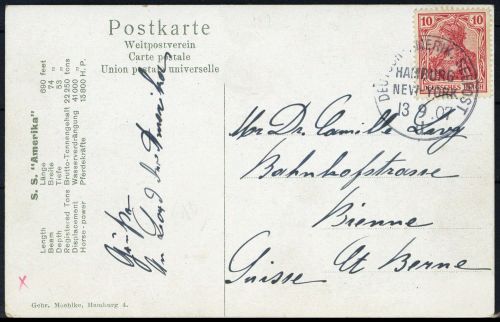 Postkarte
Weltpostverein
Carte postale
Union postale universelle
S. S. "Amerika"
Length Länge 690 feet
Beam Breite 74 "
Depth Tiefe 53 "
Registered Tons Brutto-Tonnengehalt 22250 tons
Displacement Wasserverdrängung 41000 "
Horse-power Pferdekräfte 15800 H. P.
Grüße
an Bord der Amerika
10 10
DEUTSCH-AMERIK. SEEPOST
HAMBURG
NEW-YORK
13 9.07
Mr Dr. Camille Lévy
Bahnhofstrasse
Bienne
Suisse Ct Berne
Gebr. Moehlke, Hamburg 4.